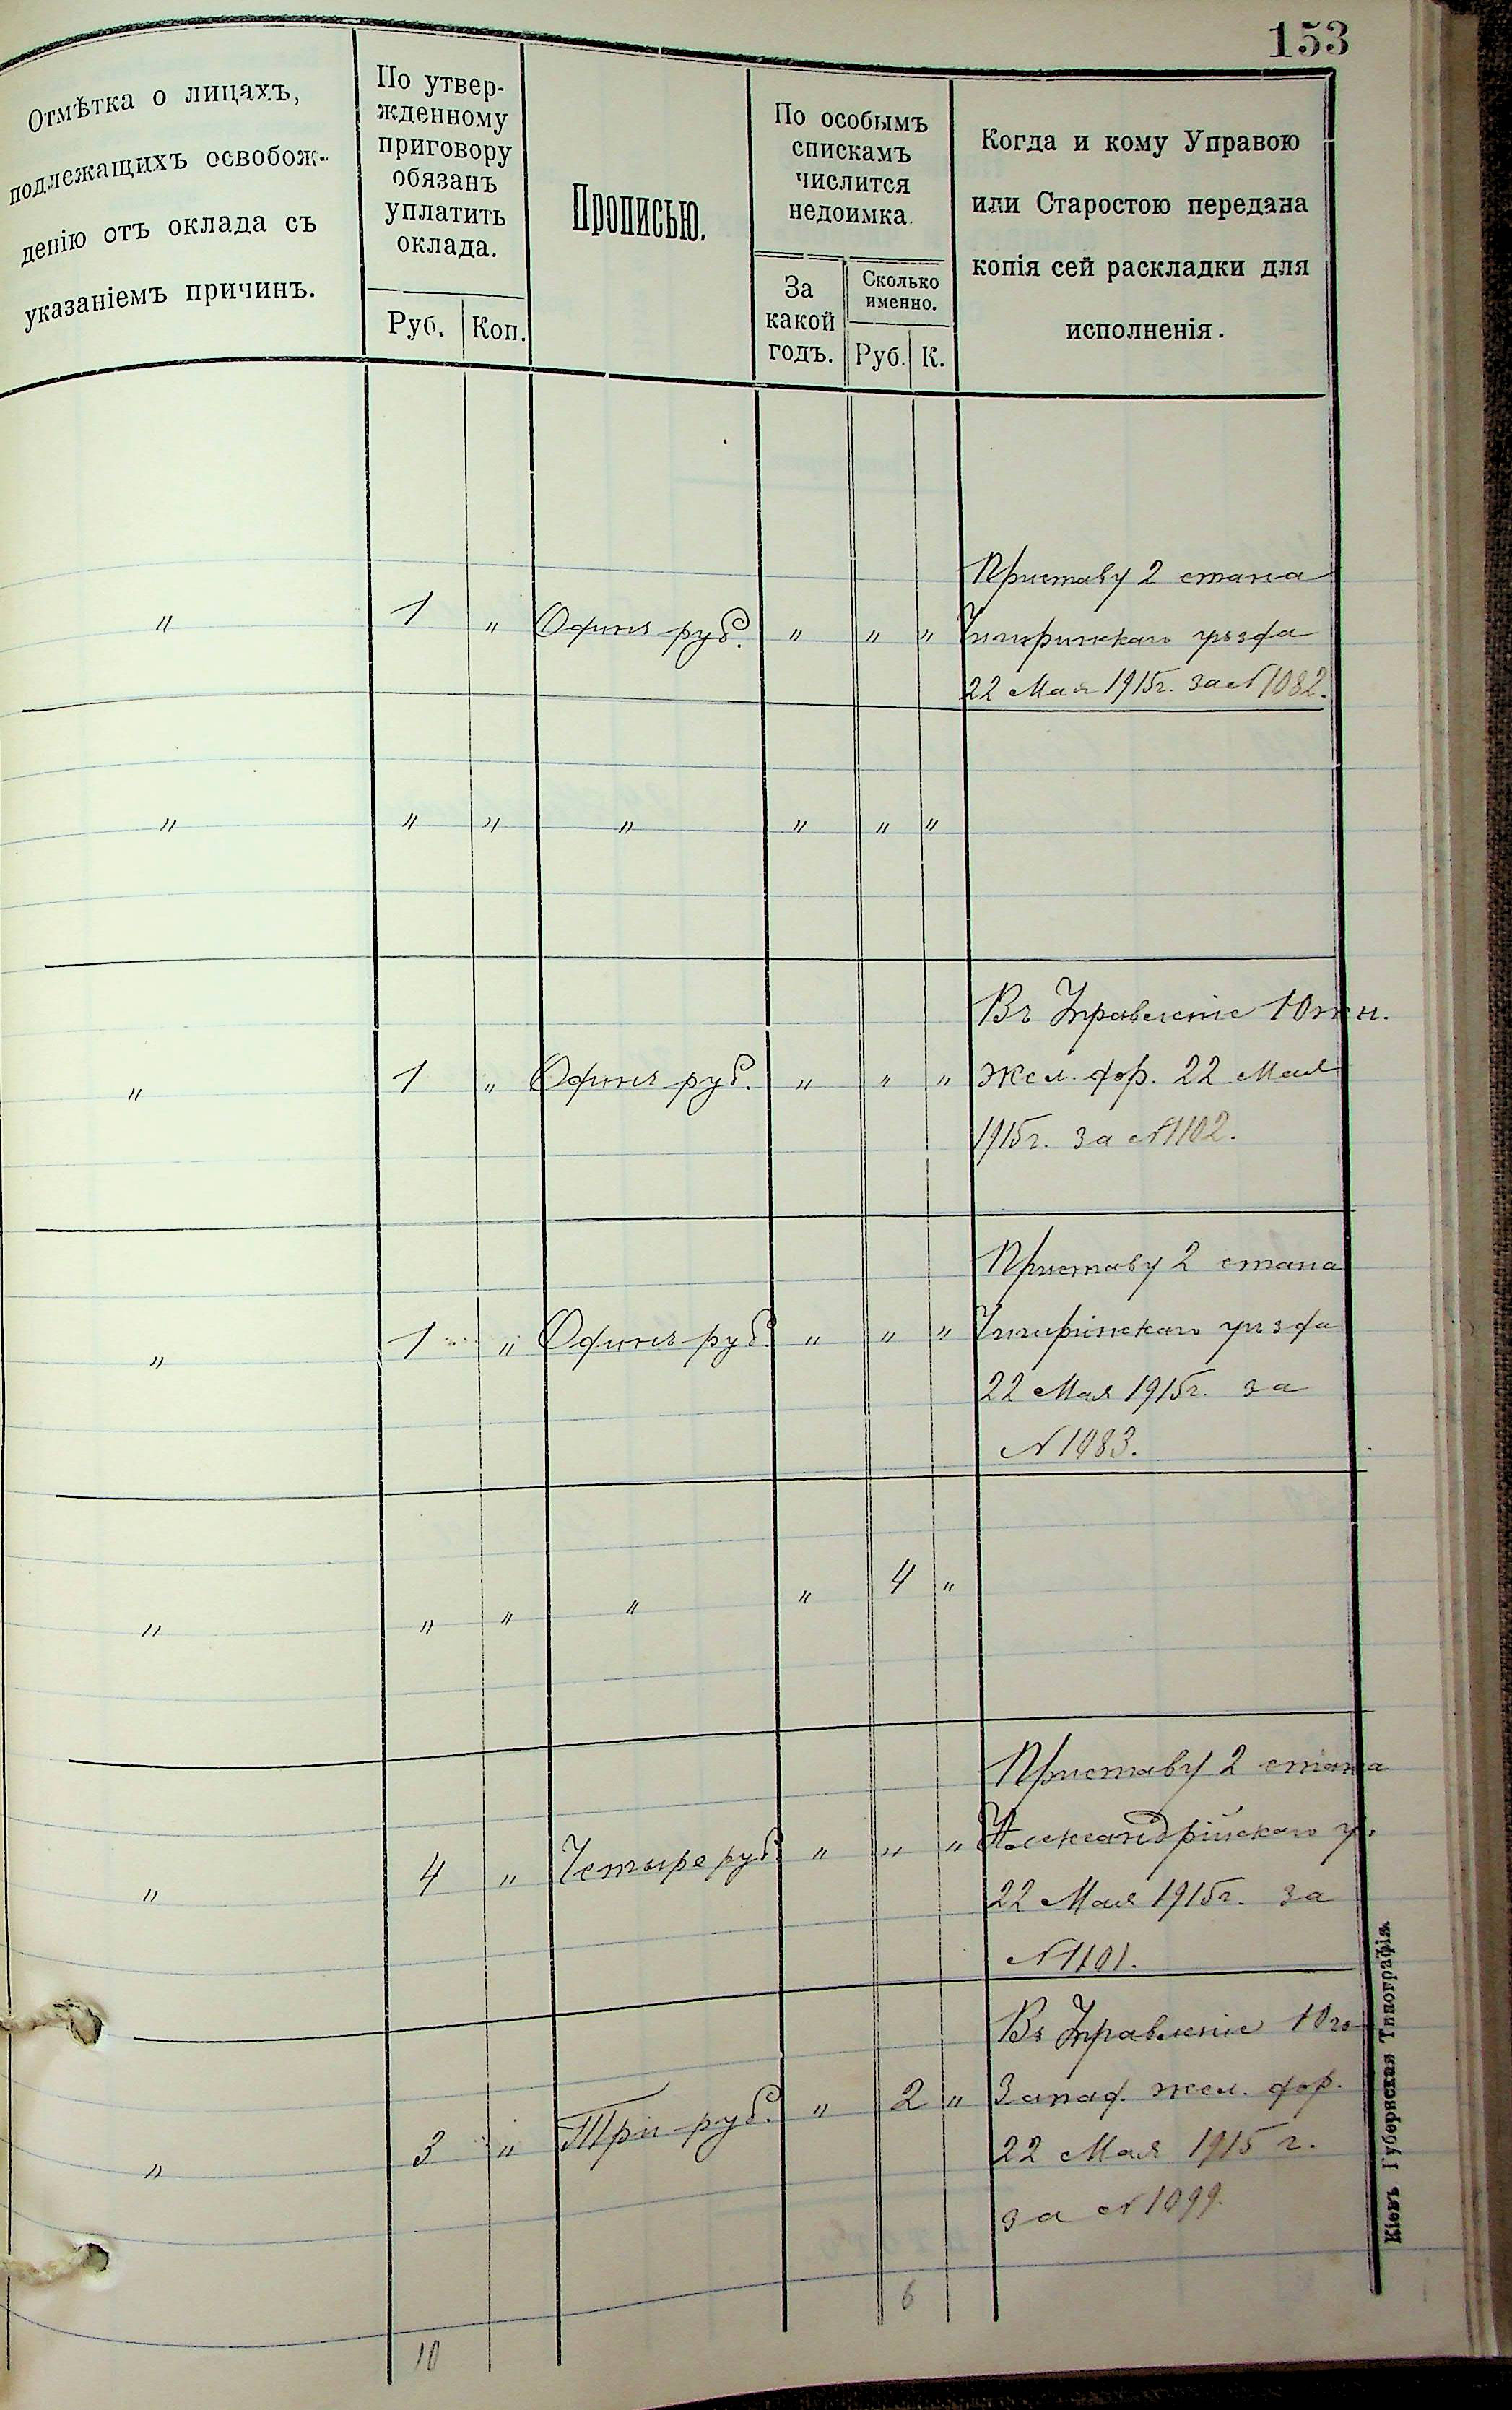 153
Отмѣтка о лицахъ,
подлежащихъ освобож-
денію отъ оклада съ
указаніемъ причинъ.
По утвер-
жденному
приговору
обязанъ
уплатить
оклада.
Руб. Коп.
Прописью.
По особымъ
спискамъ
числится
недоимка.
За
какой
годъ.
Сколько
именно.
Руб. К.
Когда и кому Управою
или Старостою передана
копія сей раскладки для
исполненія.
Приставу 2 стана
" 1 " Одинъ руб. " " " Чигиринскаго уѣзда
22 Мая 1915г. за №1082.
" " " " " " "
Въ Управленіе Южн.
" 1 " Одинъ руб. " " " жел. дор. 22 Мая
1915г. за №1102.
Приставу 2 стана
" 1 " Одинъ руб. " " " Чигиринскаго уѣзда
22 Мая 1915г. за
№1083.
" " " " " 4 "
Приставу 2 стана
" 4 " Четыре руб. " " " Александрійскаго у.
22 Мая 1915г. за
№1101.
Въ Управленіе Юго-
" 3 " Три руб. " 2 " Запад. жел. дор.
22 Мая 1915 г.
за №1099.
10 6
Кіевъ Губернская Типографія.